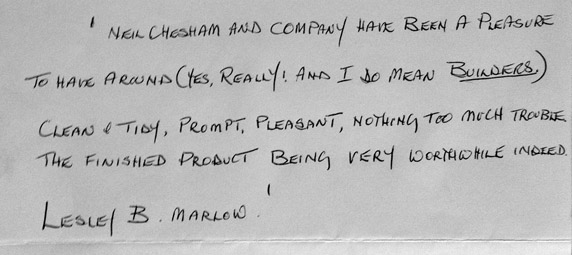 ' NEIL CHESHAM AND COMPANY HAVE BEEN A PLEASURE
TO HAVE AROUND (YES, REALLY! AND I DO MEAN BUILDERS.)
CLEAN & TIDY, PROMPT, PLEASANT, NOTHING TOO MUCH TROUBLE.
THE FINISHED PRODUCT BEING VERY WORTHWHILE INDEED.
LESLEY B. MARLOW.'